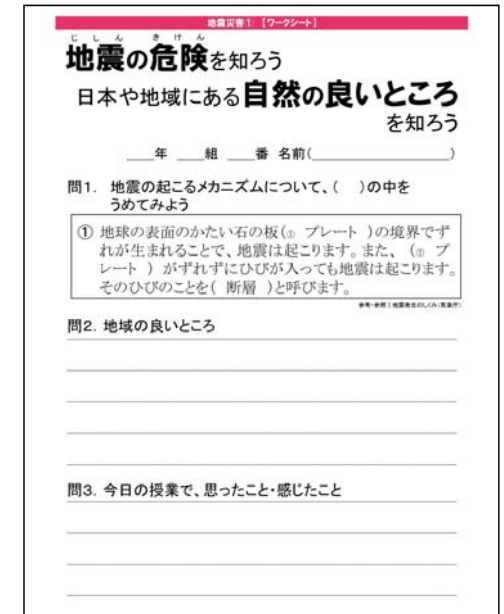 地震災害① 【ワークシート】
じしん きけん
地震の危険を知ろう
日本や地域にある自然の良いところ
を知ろう
____年 ____組 ____番 名前(____________________)
問1. 地震の起こるメカニズムについて、( )の中を
うめてみよう
① 地球の表面のかたい石の板(① プレート )の境界でず
れが生まれることで、地震は起こります。また、(① プ
レート ) がずれずにひびが入っても地震は起こります。
そのひびのことを( 断層 )と呼びます。
参考・参照 | 地震発生のしくみ(気象庁)
問2. 地域の良いところ
問3. 今日の授業で、思ったこと・感じたこと